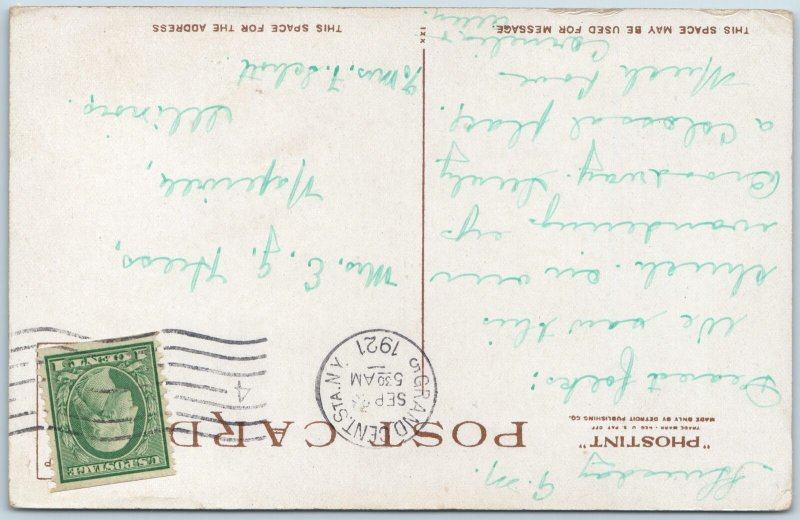 Thursday A.M.
"PHOSTINT"
TRADE MARK - REG U. S. PAT. OFF
MADE ONLY BY DETROIT PUBLISHING CO.
Dearest folks:
We saw this
church in our
wanderings up
Broadway. Surely
a Colossal place.
Much love
Cornelia &
Ellen.
POST CARD
GRAND CENT. STA. N.Y.
SEP
5 30 AM
1921
4
U.S. POSTAGE
1 CENT 1
Mrs. E. J. Hess,
Naperville,
Illinois.
% Mrs. F. Schott
THIS SPACE MAY BE USED FOR MESSAGE
XXI
THIS SPACE FOR THE ADDRESS